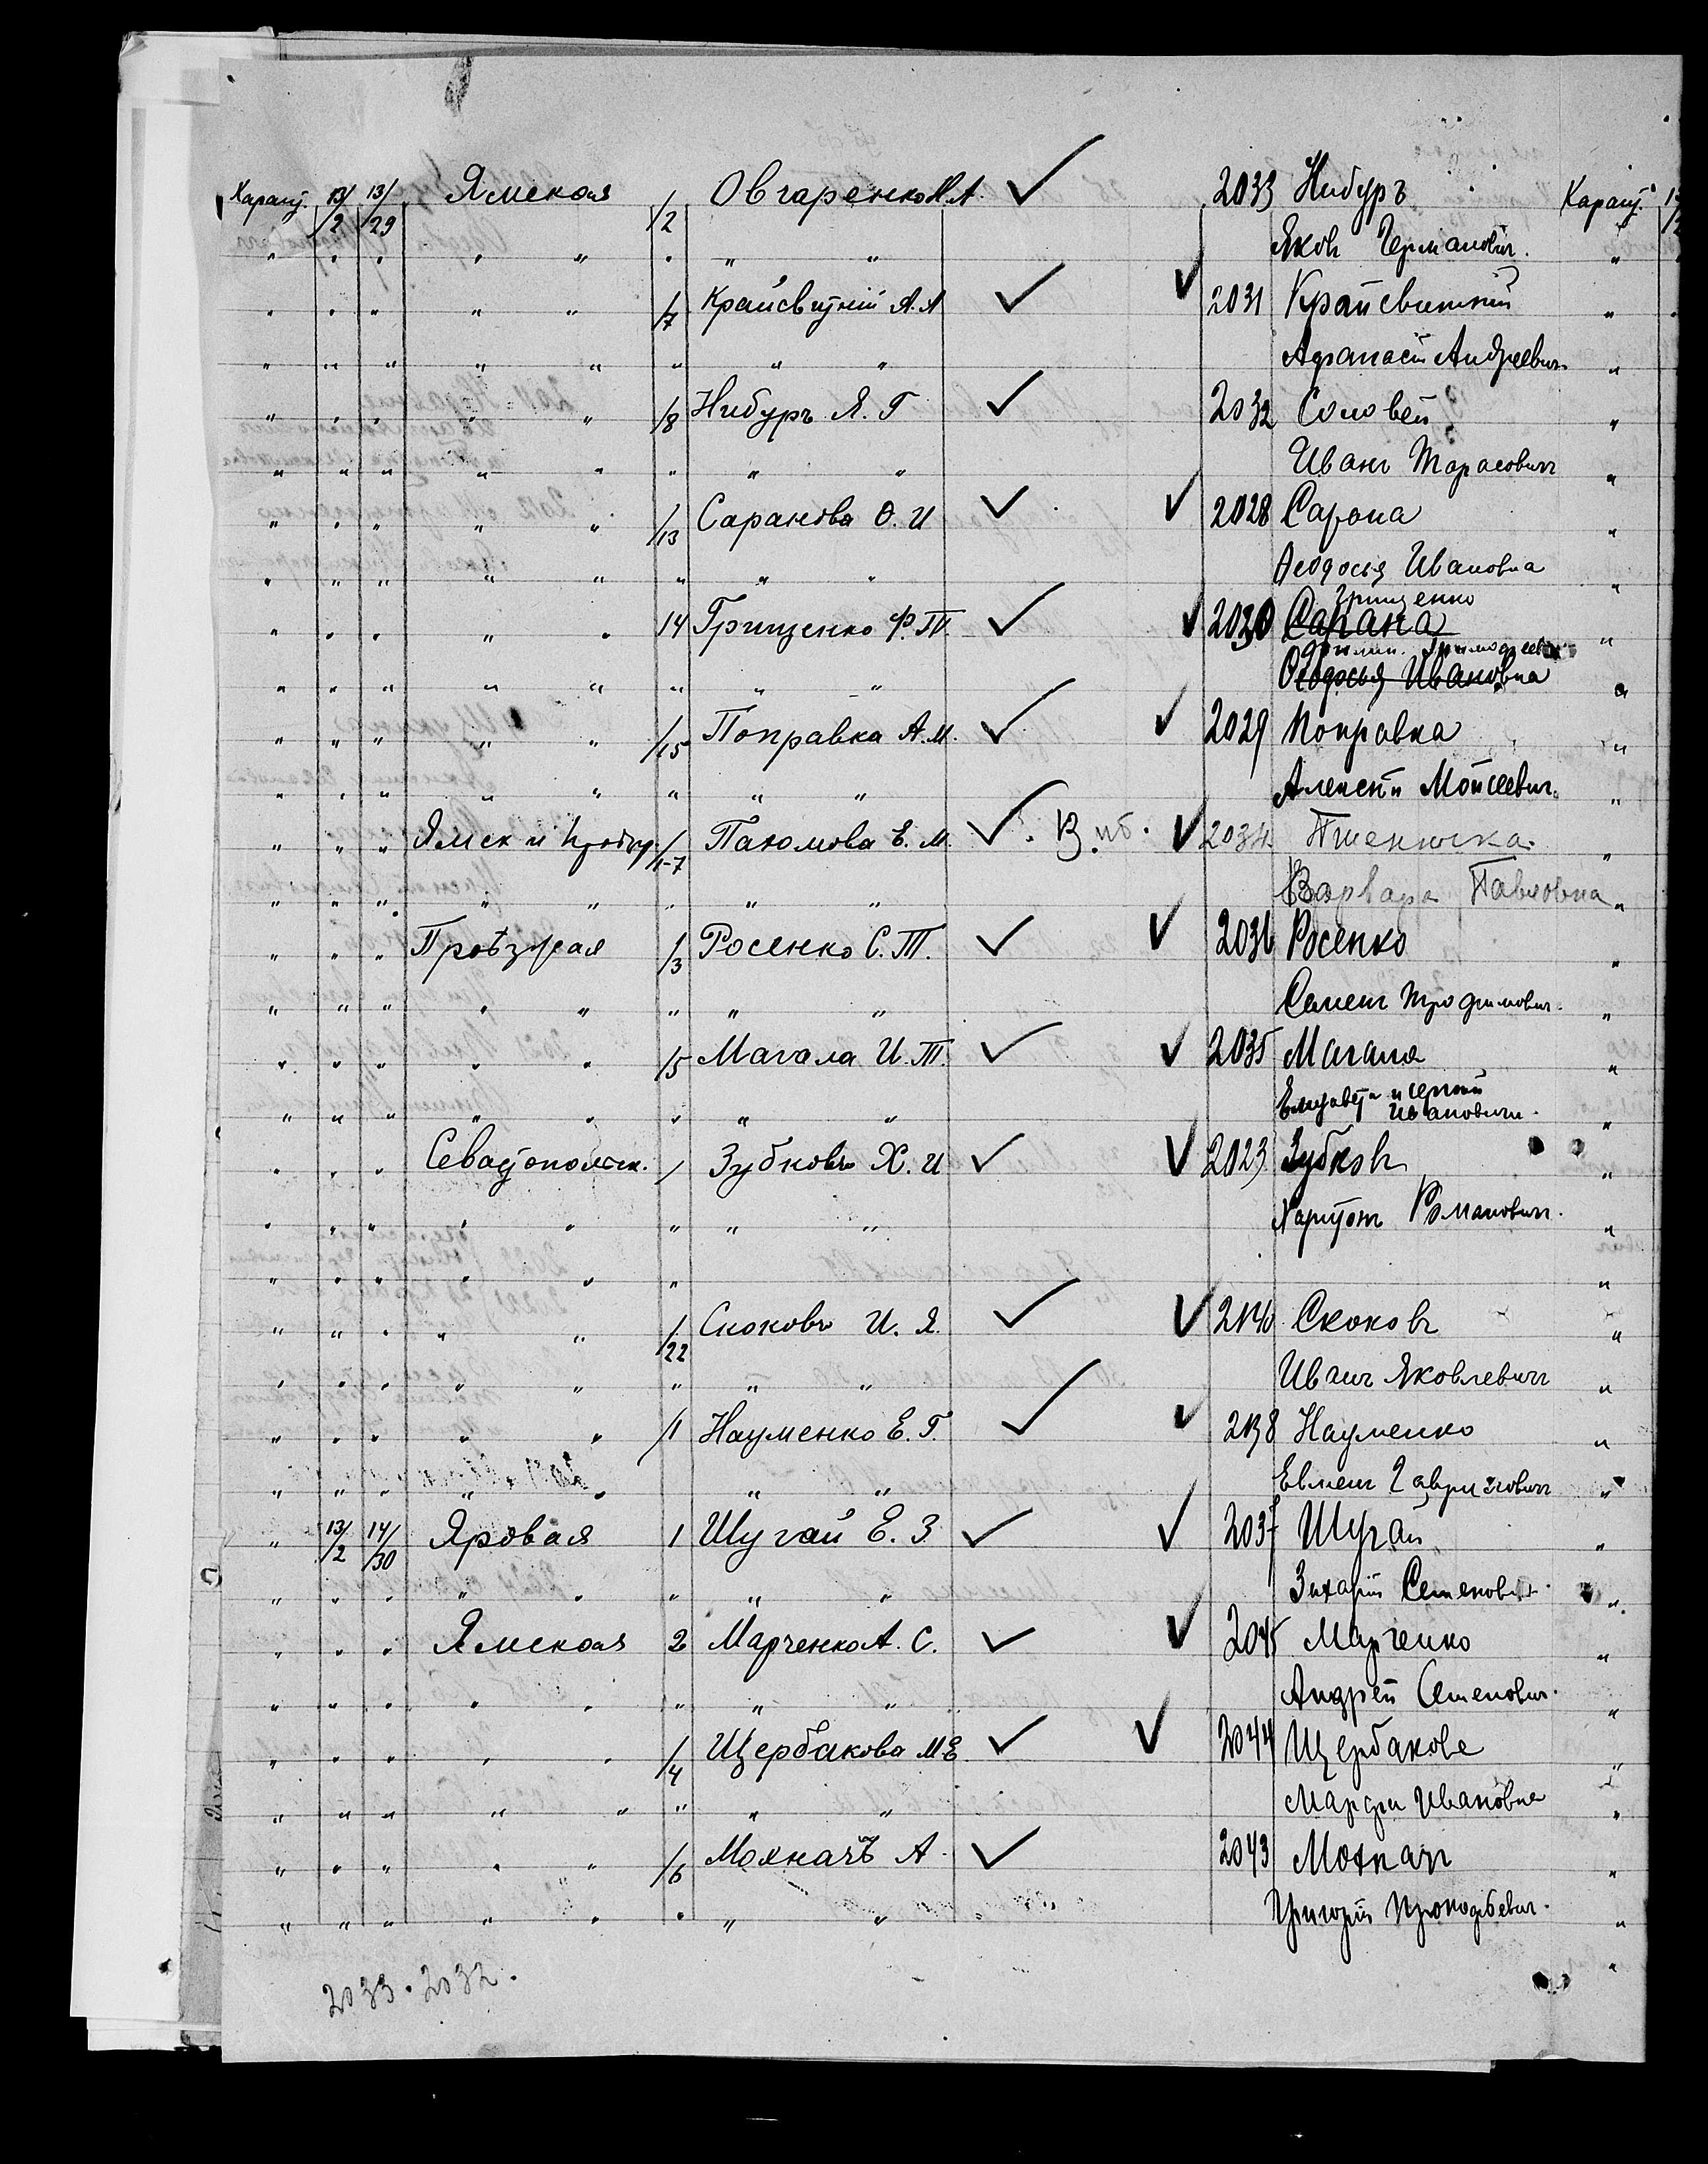 Карант. 13/2 13/29 Ямская /2 Овчаренко И.А. ✓ 2033 Нибуръ Карант.
" " " " " " " " Яковъ Германович. "
" " " " " /7 Крайсвитній А.А ✓ ✓ 2031 Крайсвитній "
" " " " " " " " Афанасій Андреевич. "
" " " " " /8 Нибуръ Я. Г ✓ 2032 Соловей "
" " " " " " " " Иванъ Тарасович "
" " " " " /13 Саранова Ѳ. И ✓ ✓ 2028 Сарана "
" " " " " " " " Ѳеодосья Ивановна "
Грищенко
" " " " " 14 Грищенко Ф.Т. ✓ ✓ 2030 Сарана "
" " " " " " " " Ѳеодосья Ивановна "
" " " " " /15 Поправка А.М. ✓ ✓ 2029 Поправка "
" " " " " " " " Алексѣй Моисеевич. "
" " " Ямск и /1-7 Пахомова Е. М. ✓ ✓ 2034 Пшеничка "
" " " " " " " " Варвара Павловна "
" " " Проѣзжая /3 Росенко С. Т. ✓ ✓ 2036 Росенко "
" " " " " " " " Семенъ Трофимович. "
" " " " " /5 Магала И. Т. ✓ ✓ 2035 Магала "
" " " " " " " " Елизавета и Сергѣй Ивановичи. "
" " " Севастопольск. / Зубковъ Х. И ✓ ✓ 2023 Зубковъ "
" " " " " " " " Харитонъ Романович. "
" " " " " " "
" " " " " /22 Скоковъ И. Я. ✓ ✓ 2040 Скоковъ "
" " " " " " " " Иванъ Яковлевич "
" " " " " /1 Науменко Е. Г. ✓ ✓ 2038 Науменко "
" " " " " " " Евмен Гаврилович "
" 13/2 14/30 Яровая 1 Шугай Е. З ✓ ✓ 2037 Шугай "
" " " " " " " " Захарій Семенович. "
" " " Ямская 2 Марченко А. С. ✓ ✓ 2045 Марченко "
" " " " " " " " Андрей Семенович. "
" " " " " /4 Щербакова М.Е. ✓ ✓ 2044 Щербакова "
" " " " " " " " Марфа Ивановна "
" " " " " /6 Мохначъ А. ✓ 2043 Мохнач "
" " " " " " " " Григорій Прокофьевич. "
2033. 2032.